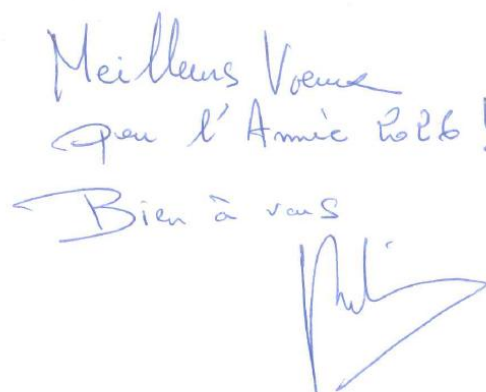 Meilleurs Voeux
pour l'Année 2026 !
Bien à vous